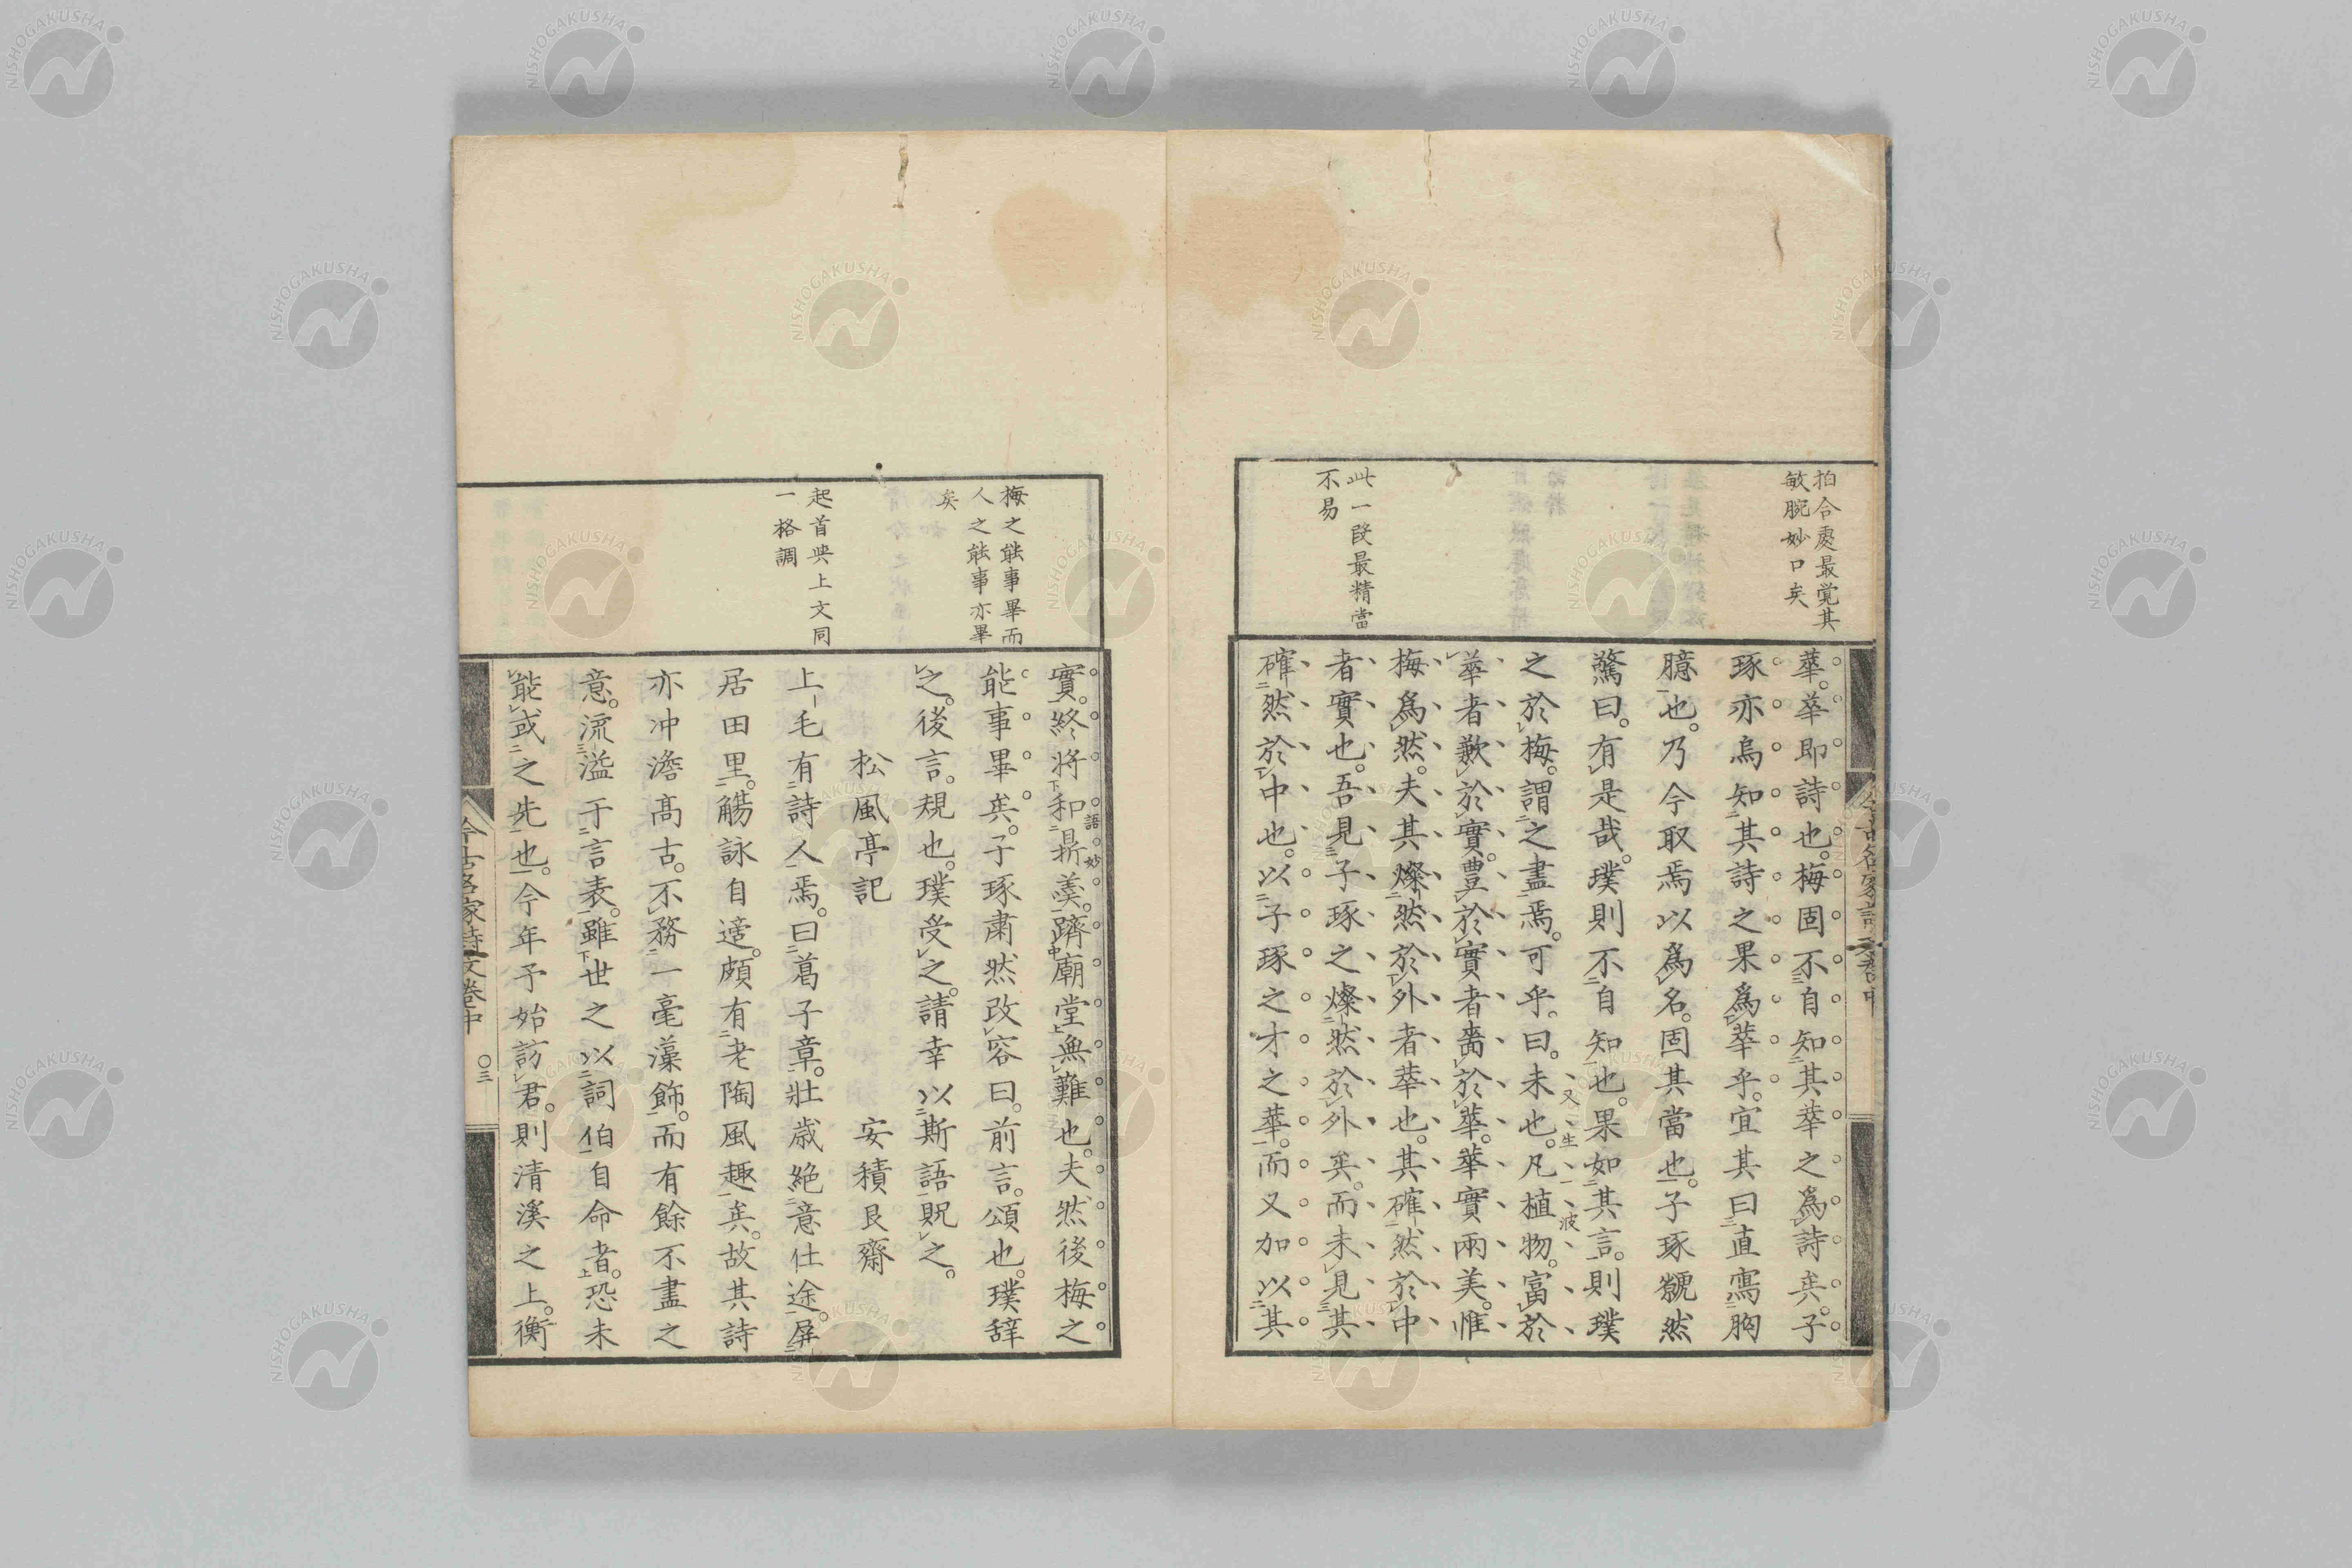 拍合處最覚其
敏腕妙口矣
此一段最精當
不易
華。華即詩也。梅固不自知其華之爲詩矣。子
琢亦烏知其詩之果爲華乎。宜其曰直寫胸
臆也。乃今取焉以爲名。固其當也。子琢覷然
驚曰。有是哉。璞則不自知也。果如其言。則璞
之於梅。謂之盡焉。可乎。曰。未也。凡植物。富於
又生一波
華者歉於實。豊於實者嗇於華。華實兩美。惟
梅爲然。夫其燦然於外者華也。其確然於中
者實也。吾見子琢之燦然於外矣。而未見其
確然於中也。以子琢之才之華。而又加以其
梅之能事畢而
人之能事亦畢
矣
起首與上文同
一格調
實。終將和鼎羹。躋廟堂無難也。夫然後梅之
語妙
能事畢矣。子琢肅然改容曰。前言。頌也。璞辞
之。後言。規也。璞受之。請幸以斯語貺之。
松風亭記 安積艮齋
上毛有詩人焉。曰葛子章。壯歳絶意仕途。屏
居田里。觴詠自適。頗有老陶風趣矣。故其詩
亦冲澹高古。不務一毫藻飾。而有餘不盡之
意。流溢于言表。雖世之以詞伯自命者。恐未
能或之先也。今年予始訪君。則清溪之上。衡
今古名家詩文卷中
〇三